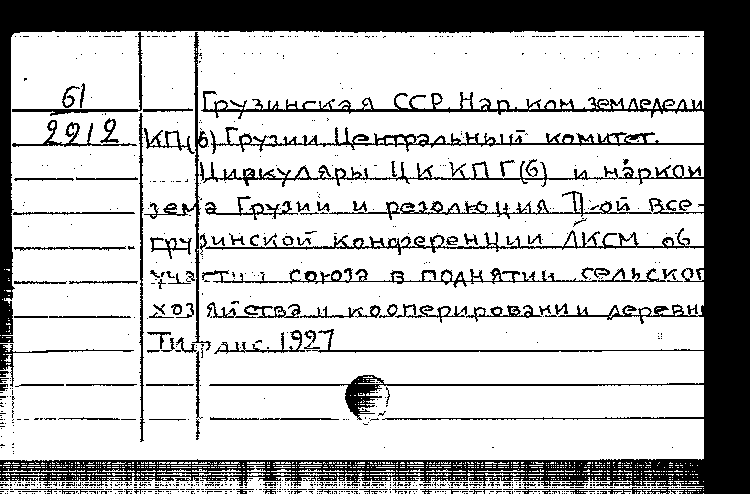 61
2912
Грузинская ССР. Нар. ком земледели
КП(б) Грузии Центральный комитет.
Циркуляры ЦК КПГ(б) и наркои
зема Грузии и резолюция II-ой Все-
грузинской конференции ЛКСМ об
участии союза в поднятии сельског
хозяйства и кооперировании деревн
Тифлис. 1927